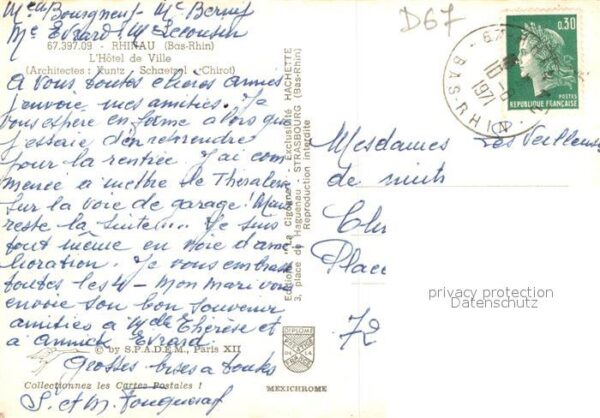 Mme Bourgneuf - Mc Bernif
Mc Evrard - Mc Lecousin
67.397.09 - RHINAU (Bas-Rhin)
L'Hôtel de Ville
(Architectes : Kuntz - Schaetzel - Chirot)
A vous toutes chères amies
j'envoie mes amitiés. Je
vous espère en forme alors que
j'essaie d'en reprendre
pour la rentrée. J'ai com
mencé à mettre le Théralène
sur la voie de garage ! Mais
reste la suite... Je suis
tout même en voie d'amé
lioration. Je vous embrasse
toutes les 4 - mon mari vous
envoie son bon souvenir
amitiés à Mde Thérèse et
à Annick Evrard.
© by S.P.A.D.E.M., Paris XII
Grosses bises à toutes
Collectionnez les Cartes Postales !
S. et M.
Editions "La Cigogne" - Exclusivité HACHETTE
3, place de Haguenau - STRASBOURG (Bas-Rhin)
Reproduction interdite
DIPLOME
MEXICHROME
D67
1971
BAS-RHIN
0,30
POSTES
REPUBLIQUE FRANÇAISE
Mesdames Les Veilleuses
de nuits
Place
72
privacy protection
Datenschutz